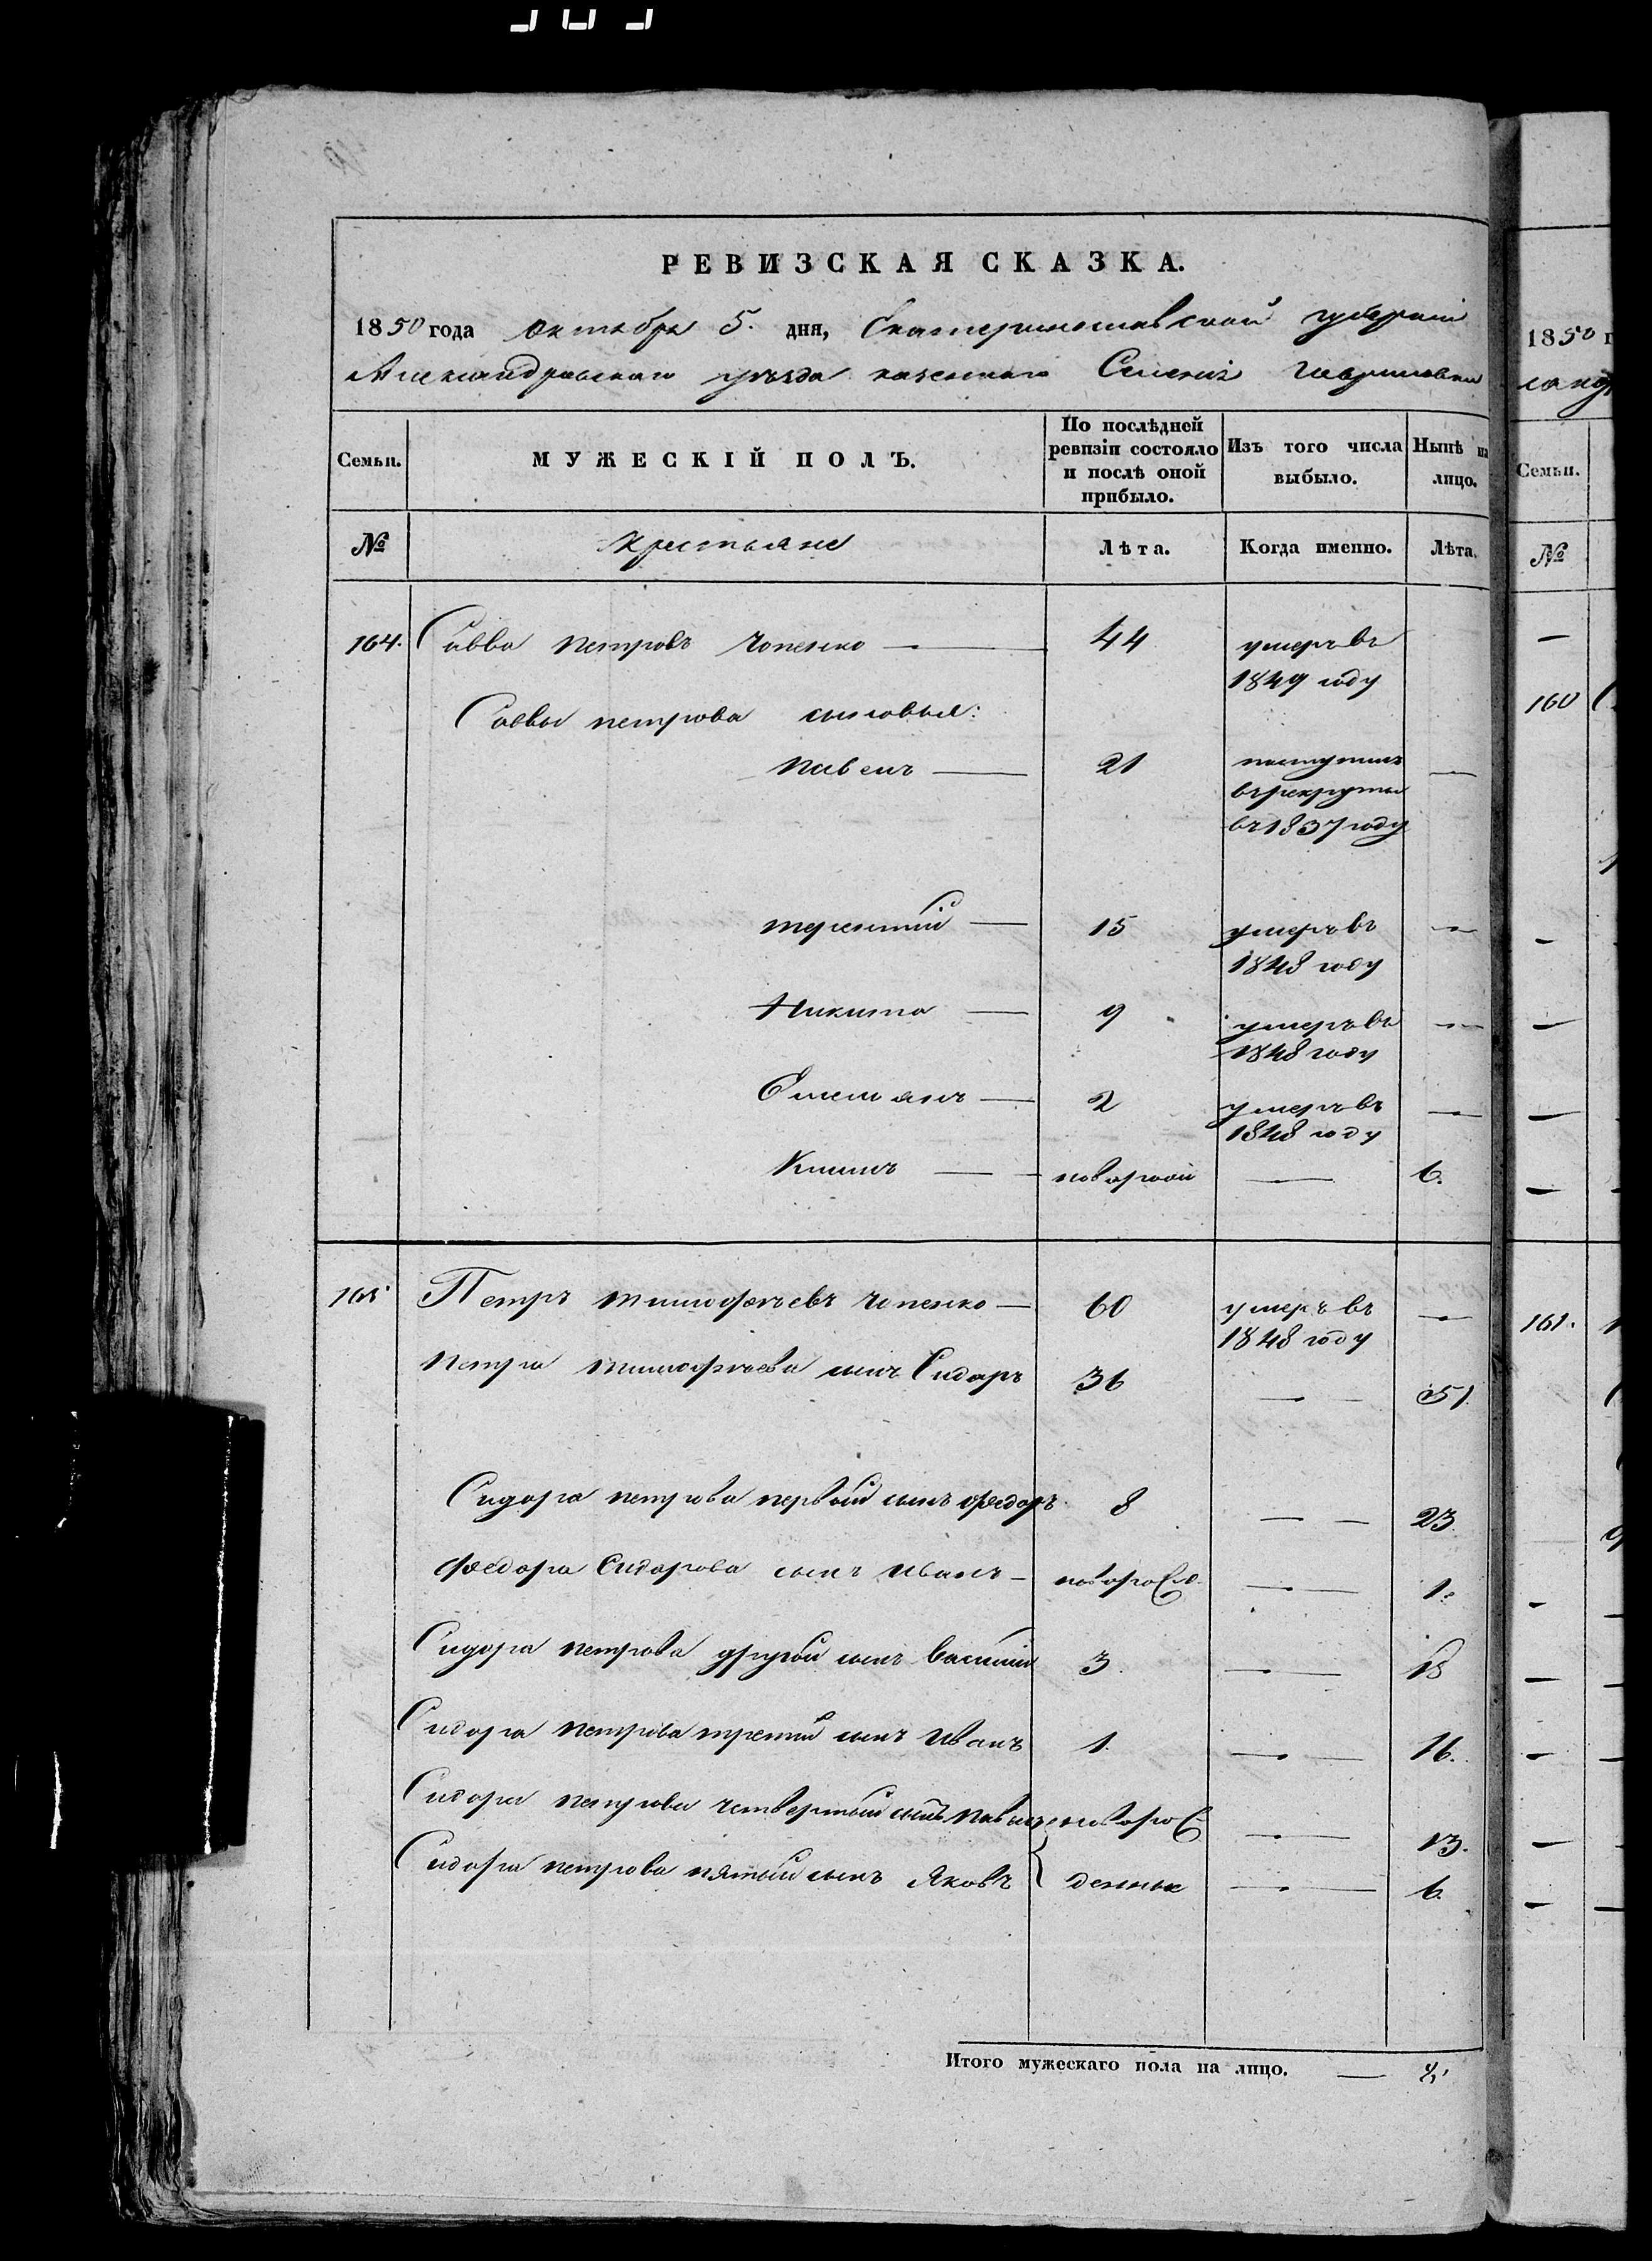 РЕВИЗСКАЯ СКАЗКА.
1850 года октября 5. дня, Екатеринославской губернии
Александровскаго уѣзда казеннаго Селенія Гавриловки
Семьи. МУЖЕСКІЙ ПОЛЪ. По послѣдней ревизіи состояло и послѣ оной прибыло. Изъ того числа выбыло. Нынѣ на лицо.
№ Крестьяне Лѣта. Когда именно. Лѣта.
164. Савва Петровъ Чопенко — 44 умеръ въ
1849 году
Саввы петрова сыновья:
Павелъ — 21 поступилъ —
въ рекруты
въ 1837 году
терентий — 15 умеръ въ —
1848 году
Никита — 9 умеръ въ —
1848 году
Емельянъ — 2 умеръ въ —
1848 году
Климъ — новорож — 6.
165 Петръ тимофѣевъ Чопенко — 60 умеръ въ —
1848 году
Петра тимофѣева сынъ Сидоръ 36 — 51
Сидора петрова первый сынъ федоръ 8 — 23
Федора Сидорова сынъ Иванъ — новорожд. — 1.
Сидора петрова другой сынъ василий 3. — 18
Сидора Петрова третий сынъ Иванъ 1. — 16.
Сидора петрова четвертый сынъ Павелъ новорож — 13.
Сидора петрова пятый сынъ Яковъ денные — 6.
Итого мужескаго пола на лицо. —
1850 г
Семьи.
№
160
161.